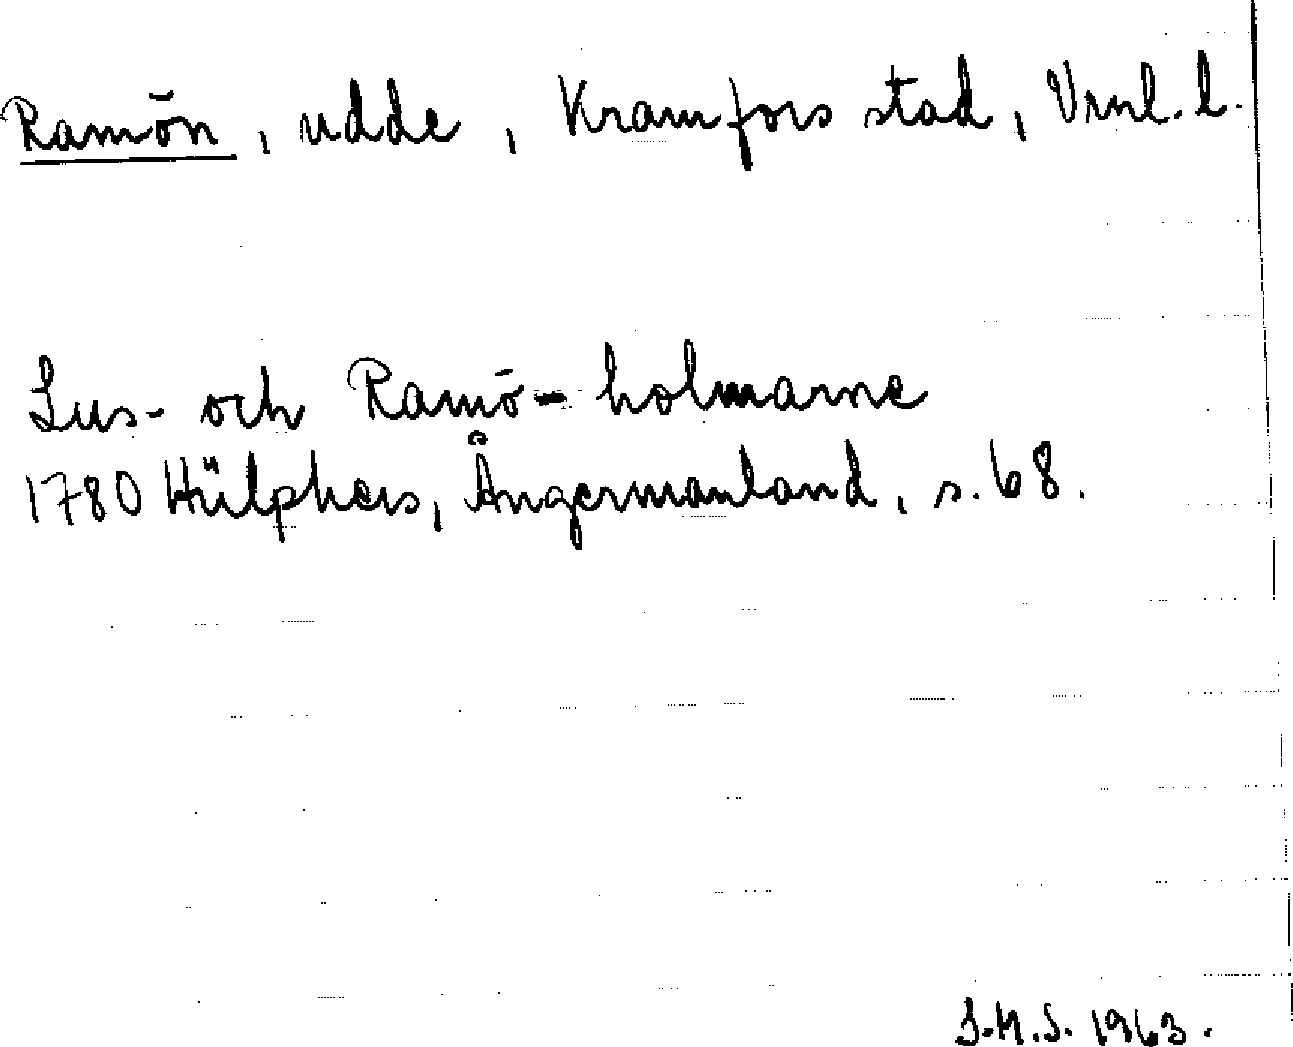 Ramön, udde, Kramfors stad, Vrnl. l.
Lus- och Ramö-holmarne
1780 Hülphers, Ångermanland, s. 68.
S.H.S. 1963.